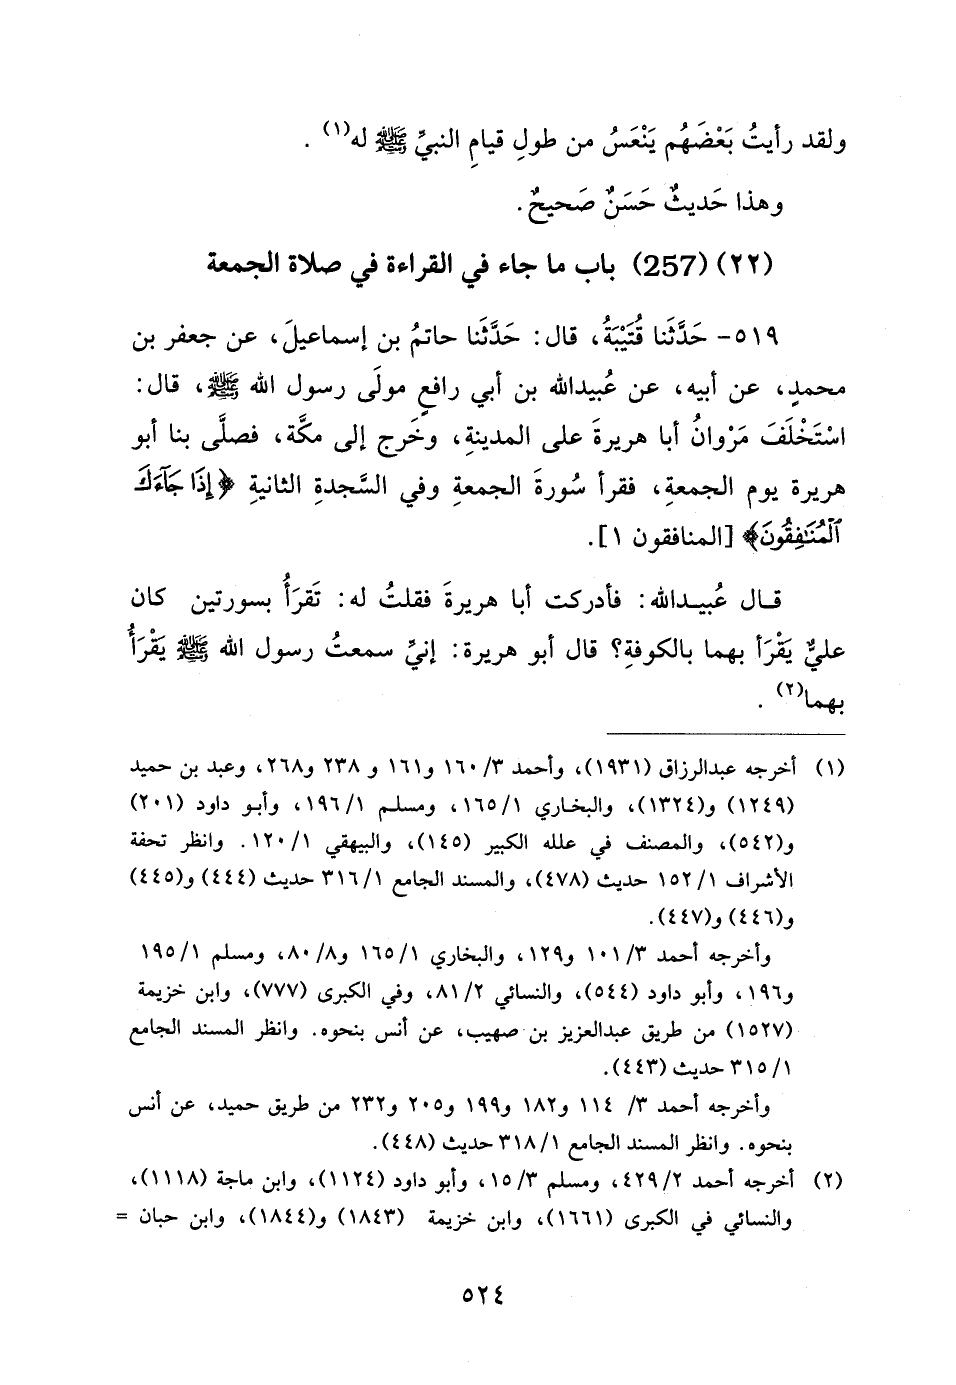 ولقد رأيتُ بَعْضَهُم يَنْعَسُ من طولِ قيامِ النبيِّ ﷺ له(١) .
وهذا حَديثٌ حَسَنٌ صَحيحٌ.
(٢٢) (257) باب ما جاء في القراءة في صلاة الجمعة
٥١٩- حَدَّثَنا قُتَيْبَةُ، قال: حَدَّثَنا حاتمُ بن إسماعيلَ، عن جعفر بن
محمدٍ، عن أبيه، عن عُبيدالله بن أبي رافعٍ مولَى رسول الله ﷺ، قال:
اسْتَخْلَفَ مَرْوانُ أبا هريرةَ على المدينةِ، وخَرج إلى مكَّة، فصلَّى بنا أبو
هريرة يوم الجمعةِ، فقرأ سُورةَ الجمعةِ وفي السَّجدةِ الثانيةِ ﴿إِذَا جَآءَكَ
ٱلْمُنَـٰفِقُونَ﴾ [المنافقون ١].
قـال عُبيـدالله: فأدركت أبا هريرةَ فقلتُ له: تَقرَأُ بسورتين كان
عليٌّ يَقْرَأ بهما بالكوفةِ؟ قال أبو هريرة: إنيِّ سمعتُ رسول الله ﷺ يَقْرَأُ
بهما(٢) .
(١) أخرجه عبدالرزاق (١٩٣١)، وأحمد ٣/ ١٦٠ و١٦١ و ٢٣٨ و٢٦٨، وعبد بن حميد
(١٢٤٩) و(١٣٢٤)، والبخاري ١/ ١٦٥، ومسلـم ١/ ١٩٦، وأبـو داود (٢٠١)
و(٥٤٢)، والمصنف في علله الكبير (١٤٥)، والبيهقي ١/ ١٢٠. وانظر تحفة
الأشراف ١/ ١٥٢ حديث (٤٧٨)، والمسند الجامع ١/ ٣١٦ حديث (٤٤٤) و(٤٤٥)
و(٤٤٦) و(٤٤٧).
وأخرجه أحمد ٣/ ١٠١ و١٢٩، والبخاري ١/ ١٦٥ و٨/ ٨٠، ومسلم ١/ ١٩٥
و١٩٦، وأبو داود (٥٤٤)، والنسائي ٢/ ٨١، وفي الكبرى (٧٧٧)، وابن خزيمة
(١٥٢٧) من طريق عبدالعزيز بن صهيب، عن أنس بنحوه. وانظر المسند الجامع
١/ ٣١٥ حديث (٤٤٣).
وأخرجه أحمد ٣/ ١١٤ و١٨٢ و١٩٩ و٢٠٥ و٢٣٢ من طريق حميد، عن أنس
بنحوه. وانظر المسند الجامع ١/ ٣١٨ حديث (٤٤٨).
(٢) أخرجه أحمد ٢/ ٤٢٩، ومسلم ٣/ ١٥، وأبو داود (١١٢٤)، وابن ماجة (١١١٨)،
والنسائي في الكبرى (١٦٦١)، وابن خزيمة (١٨٤٣) و(١٨٤٤)، وابن حبان =
٥٢٤